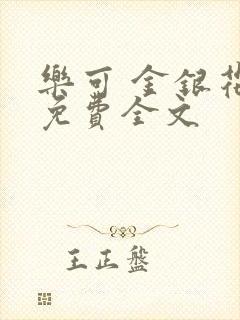 樂可 金銀花
免費全文
王正盤